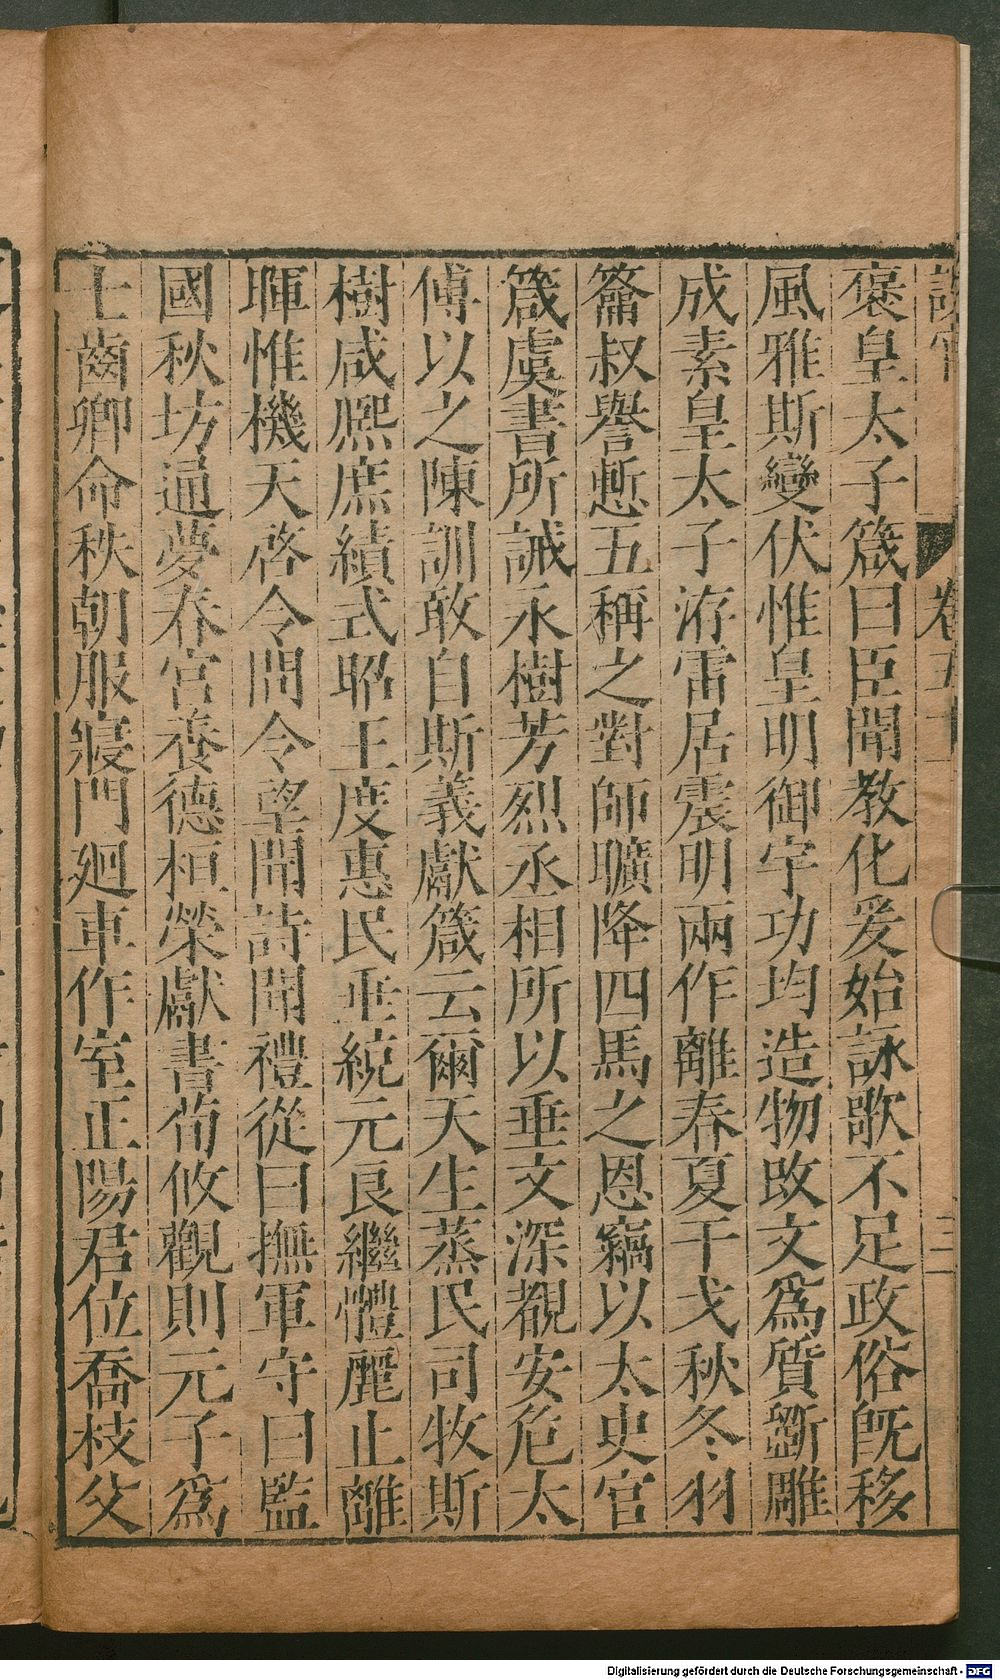 卷五十
三
褒皇太子箴曰臣聞教化爰始詠歌不足政俗旣移
風雅斯變伏惟皇明御宇功均造物改文爲質斵雕
成素皇太子洊雷居震明兩作離春夏干戈秋冬羽
籥叔譽慙五稱之對師曠降四馬之恩竊以太史官
箴虞書所誡永樹芳烈丞相所以垂文深覩安危太
傅以之陳訓敢自斯義獻箴云爾天生蒸民司牧斯
樹咸熈庶績式昭王度惠民垂統元良繼體麗止離
暉惟機天啓令問令望聞詩聞禮從曰撫軍守曰監
國秋坊通夢春宮養德桓榮獻書荀攸觀則元子爲
士齒卿命秩朝服寢門廻車作室正陽君位喬枝父
Digitalisierung gefördert durch die Deutsche Forschungsgemeinschaft - DFG